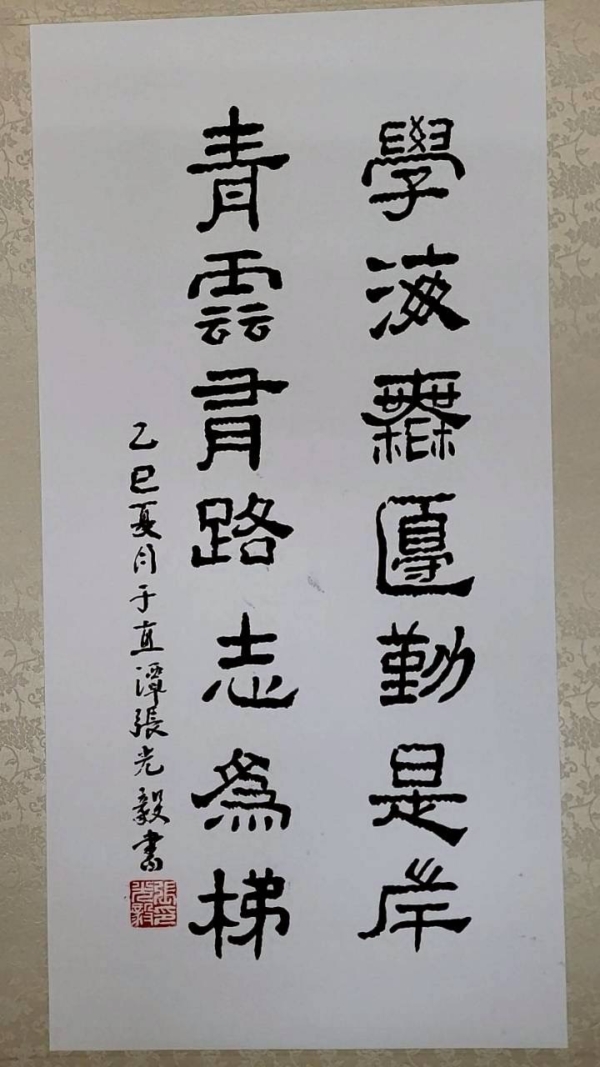 學海無邊勤是岸
青雲有路志為梯
乙巳夏月于直潭張光毅書
張光毅印